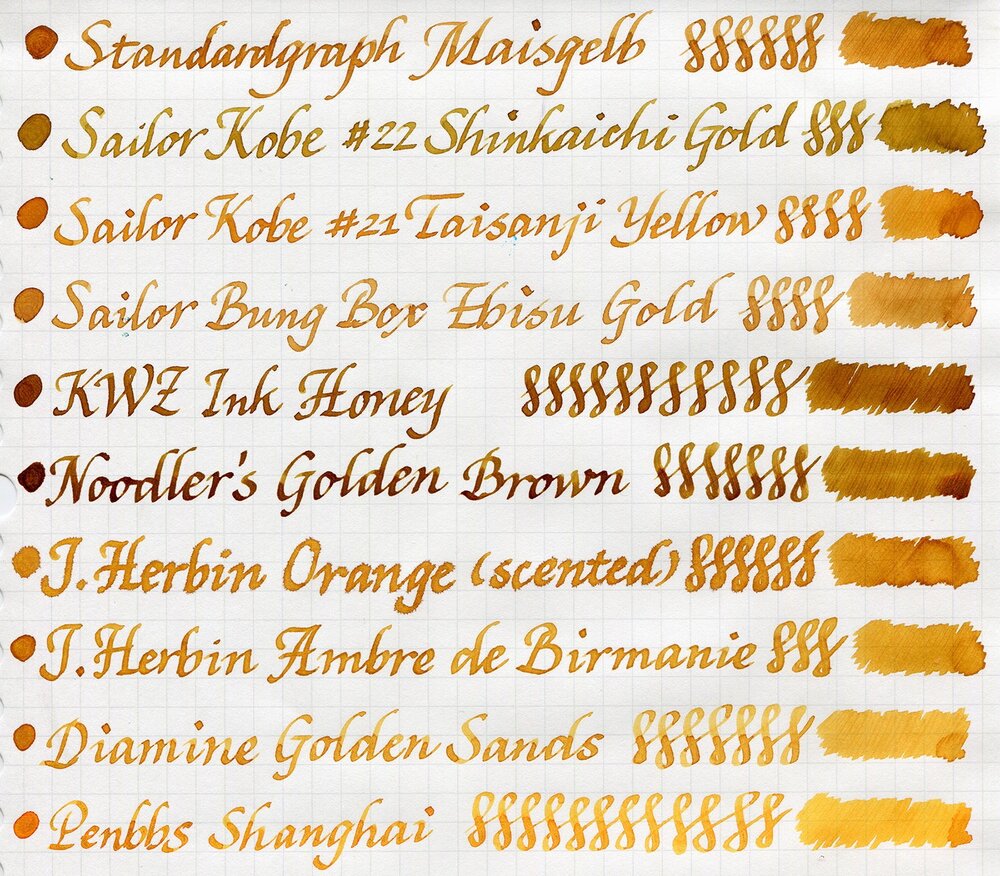 Standardgraph Maisgelb
Sailor Kobe #22 Shinkaichi Gold
Sailor Kobe #21 Taisanji Yellow
Sailor Bung Box Ebisu Gold
KWZ Ink Honey
Noodler's Golden Brown
J. Herbin Orange (scented)
J. Herbin Ambre de Birmanie
Diamine Golden Sands
Penbbs Shanghai